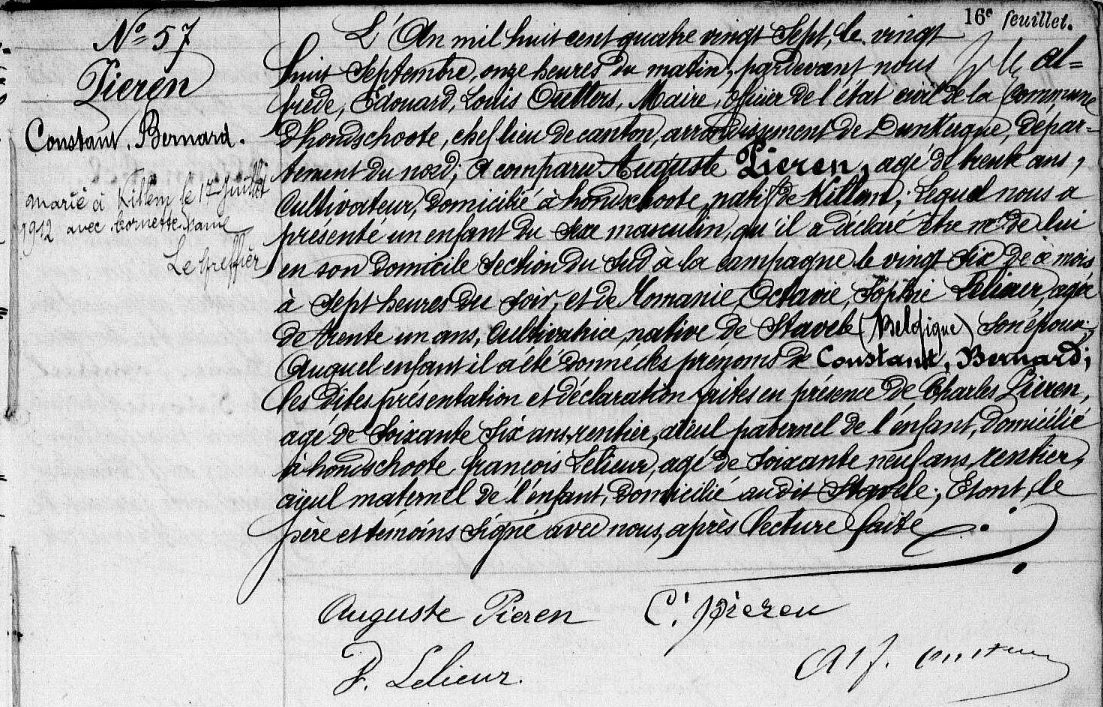 16e feuillet.
No 57
Pieren
Constant, Bernard.
marié à Killem le 17 juillet
1912 avec
Le greffier
L'An mil huit cent quatre vingt Sept, le vingt
huit Septembre, onze heures du matin, pardevant nous Al=
frède, Édouard, Louis Outters, Maire, officier de l'état civil de la Commune
d'hondschoote, chef lieu de canton, arrondissement de Dunkerque, dépar-
tement du nord; A comparu Auguste Pieren, agé de trente ans,
Cultivateur, domicilié à hondschoote, natif de Killem; Lequel nous a
présenté un enfant du sexe masculin, qu'il a déclaré être né de lui
en son domicile section du Sud à la campagne le vingt six de ce mois
à Sept heures du Soir, et de Romanie, Octavie, Sophie Lelieur, agée
de trente un ans, Cultivatrice, native de Stavele (Belgique) Son épouse,
Auquel enfant il a été donné les prénoms de Constant, Bernard;
les dites présentation et déclaration faites en présence de Charles Pieren,
agé de Soixante Six ans, rentier, aïeul paternel de l'enfant, domicilié
à hondschoote, françois Lelieur, agé de Soixante neuf ans, rentier,
aïeul maternel de l'enfant, domicilié audit Stavele; Et ont, le
père et témoins Signé avec nous, après lecture faite.
Auguste Pieren C. Pieren
F. Lelieur. Alf.